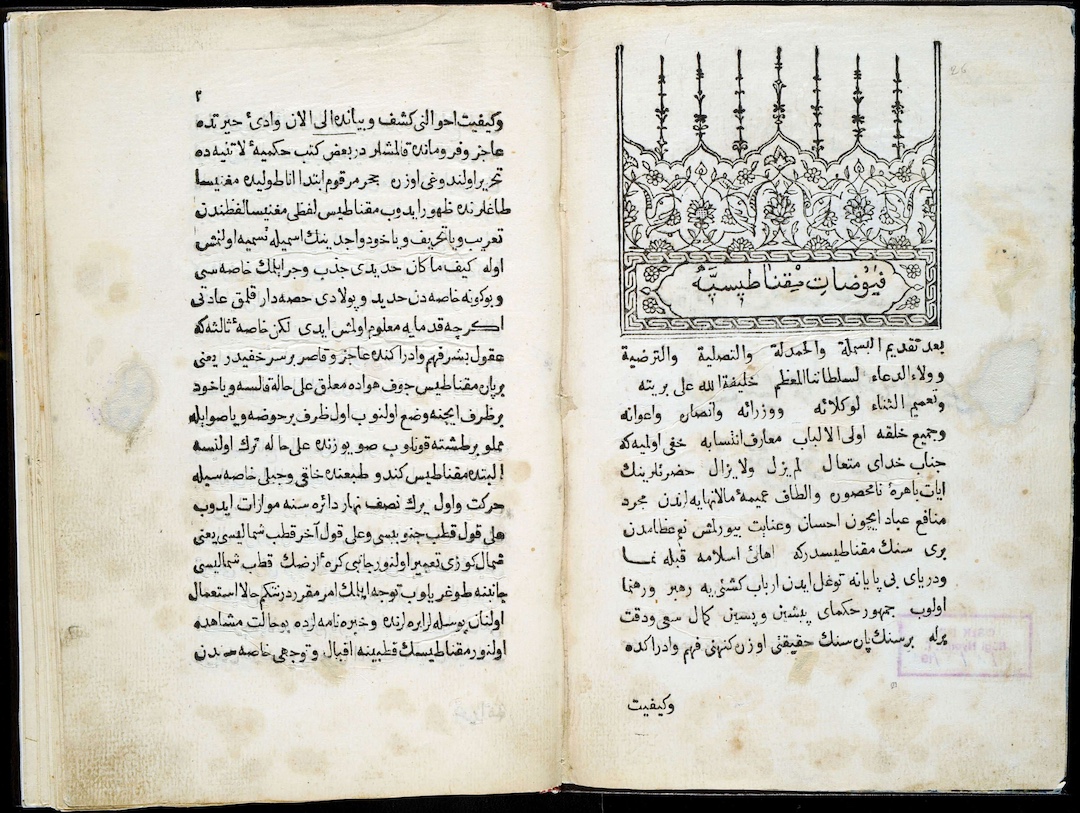 فيوضات مقناطيسيه
بعد تقديم البسملة والحمدلة والتصلية والترضية
وولاء الدعاء لسلطاننا المعظم خليفة الله على بريته
وتعميم الثناء لوكلائه ووزرائه وانصاره واعوانه
وجميع خلقه اولى الالباب معارف انتسابه خفى اولميه كه
جناب خداى متعال لم يزل ولا يزال حضرتلرينك
ايات باهرهٔ نامحصوره والطاف عميمهٔ مالانهايه لرندن مجرد
منافع عباد ايچون احسان وعنايت بيورلمش نعم عظامدن
برى سنك مقناطيسدركه اهالئ اسلامه قبله نما
ودرياى بى پايانه توغل ايدن ارباب كشتى يه رهبر ورهنما
اولوب جمهور حكماى پيشين وپسين كمال سعى ودقت
يرله برسنك پاره سنك حقيقتى اوزره كنهنى فهم وادراكده
وكيفيت
٢
وكيفيت احوالنى كشف وبيانده الى الان وادئ حيرتده
عاجز وفرومانده قالمشلر در بعض كتب حكميهٔ لاتنيه ده
تحرير اولندوغى اوزره حجر مرقوم ابتدا اناطوليده مغنيسا
طاغلرنده ظهور ايدوب مقناطيس لفظى مغنيسا لفظندن
تعريب ويا تحريف ويا خود واجدينك اسميله تسميه اولنمش
اوله كيف ما كان حديدى جذب وجر ايلمك خاصه سى
وبو كونه خاصه دن حديد وپولادى حصه دار قلمق عادتى
اكرچه قدمايه معلوم اولمش ايدى لكن خاصهٔ ثالثه كه
عقول بشر فهم وادراكنده عاجز وقاصر بر سر خفيدر يعنى
بر پاره مقناطيس جوف هواده معلق على حاله قالسه وياخود
بر ظرف ايچنه وضع اولنوب اول ظرف بر حوضه ويا صو ايله
مملو بر طشته قونلوب صو يوزنده على حاله ترك اولنسه
البته مقناطيس كندو طبيعنده خلقى وجبلى خاصه سيله
حركت واول يرك نصف نهار دائره سنه موازات ايدوب
على قول قطب جنوبيسى وعلى قول آخر قطب شماليسى يعنى
شمال كوزى تعبير اولنور جانبى كرهٔ ارضك قطب شماليسى
جانبنه طوغريلوب توجه ايلمك امر مقرردر نتكم حالا استعمال
اولنان پوسله لرابره لرنده وخبره نامه لرده بو حالت مشاهده
اولنور مقناطيسك قطبينه اقبال وتوجهى خاصه سندن